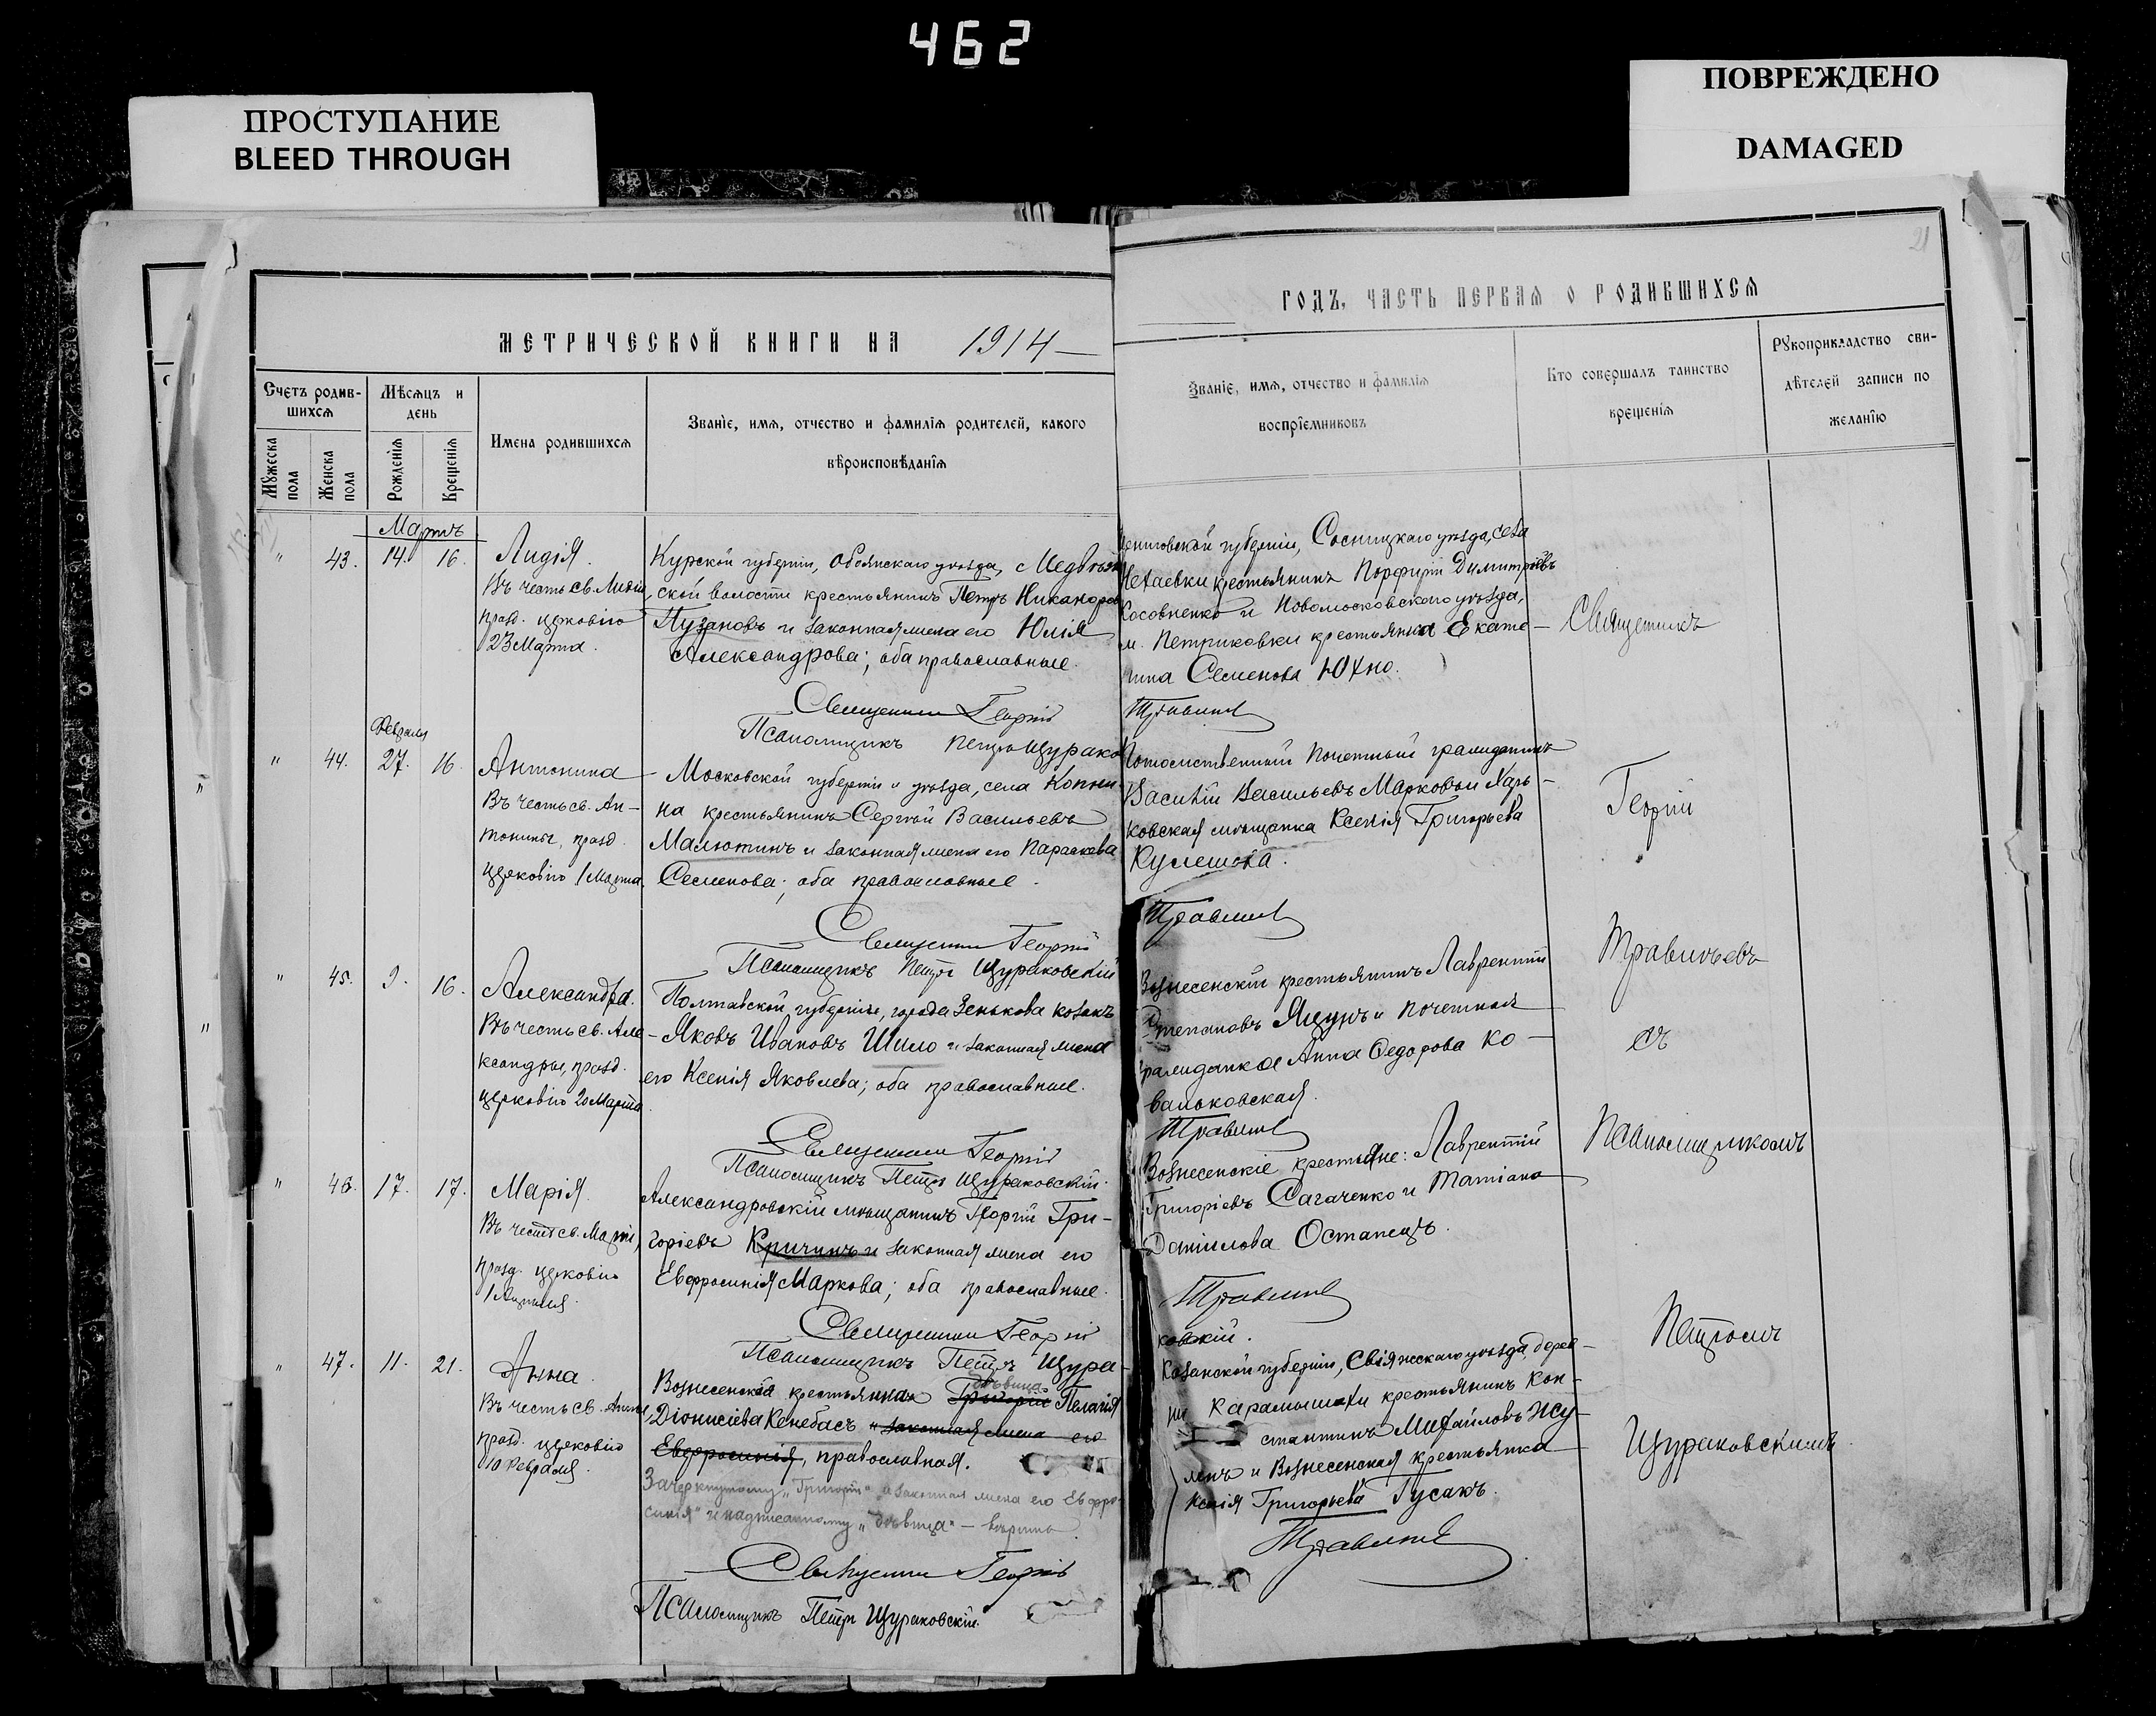 462
ПРОСТУПАНИЕ
BLEED THROUGH
ПОВРЕЖДЕНО
DAMAGED
21
МЕТРИЧЕСКОЙ КНИГИ НА 1914
ГОДЪ, ЧАСТЬ ПЕРВАЯ О РОДИВШИХСЯ
Счетъ родив-
шихся
Мужеска пола
Женска пола
Мѣсяцъ и
день
Рожденія
Крещенія
Имена родившихся
Званіе, имя, отчество и фамилія родителей, какого
вѣроисповѣданія
Званіе, имя, отчество и фамилія
воспріемниковъ
Кто совершалъ таинство
крещенія
Рукоприкладство сви-
дѣтелей записи по
желанію
Мартъ
" 43. 14. 16.
Лидія.
Въ честь св. Лидіи,
празд. церковію
23 Марта.
Курской губерніи, Обоянскаго уѣзда, с
ской волости крестьянинъ Петръ Никаноров
Пузановъ и законная жена его Юлія
Александрова; оба православные.
Священникъ Георгій
Псаломщикъ Петръ Щурако
Черниговской губерніи, Сосницкаго уѣзда, села
Нехаевки крестьянинъ Порфирій Димитріевъ
Косовненко и Новомосковскаго уѣзда,
м. Петриковки крестьянка Екате-
рина Семенова Юхно.
Травинъ
Февраля
" 44. 27. 16.
Антонина
Въ честь св. Ан-
тонины, празд.
церковію 1 Марта.
Московской губерніи и уѣзда, села Копни-
на крестьянинъ Сергѣй Васильевъ
Малютинъ и законная жена его Параскева
Семенова; оба православные.
Священникъ Георгій
Псаломщикъ Петръ Щураковскій
Потомственный Почетный гражданинъ
Василій Васильевъ Марковъ и Харь-
ковская мѣщанка Ксенія Григорьева
Кулешова.
Травинъ
" 45. 9. 16.
Александра.
Въ честь св. Але-
ксандры, празд.
церковію 20 Марта
Полтавской губерніи, города Зенькова козакъ
Яковъ Ивановъ Шило и законная жена
его Ксенія Яковлева; оба православные.
Священникъ Георгій
Псаломщикъ Петръ Щураковскій.
Вознесенскій крестьянинъ Лаврентій
Степановъ Яцунъ и почетная
гражданка Анна Федорова Ко-
вальковская.
Травинъ
" 46. 17. 17.
Марія.
Въ честь св. Маріи,
празд. церковію
1 Апрѣля.
Александровскій мѣщанинъ Георгій Гри-
горіевъ Кричинъ и законная жена его
Евфросинія Маркова; оба православные.
Священникъ Георгій
Псаломщикъ Петръ Щура-
Вознесенскіе крестьяне: Лаврентій
Григоріевъ Сагаченко и Татіана
Даніилова Остапецъ.
Травинъ
ковскій.
" 47. 11. 21.
Анна.
Въ честь св. Анны,
празд. церковію
10 Февраля.
дѣвица
Вознесенская крестьянка Григорій Пелагія
Діонисіева Кенебасъ и законная жена его
Евфросинія, православная.
Зачеркнутому „Григорій" и законная жена его Евфро-
синія" и надписанному „дѣвица" – вѣрить.
Священникъ Георгій
Псаломщикъ Петръ Щураковскій.
Казанской губерніи, Свіяжскаго уѣзда, дерев-
ни Карамышихи крестьянинъ Кон-
стантинъ Михайловъ
и Вознесенская крестьянка
Ксенія Григорьева Гусакъ.
Травинъ
Священникъ
Георгій
Травинъевъ
съ
Псаломщикомъ
Петромъ
Щураковскимъ.